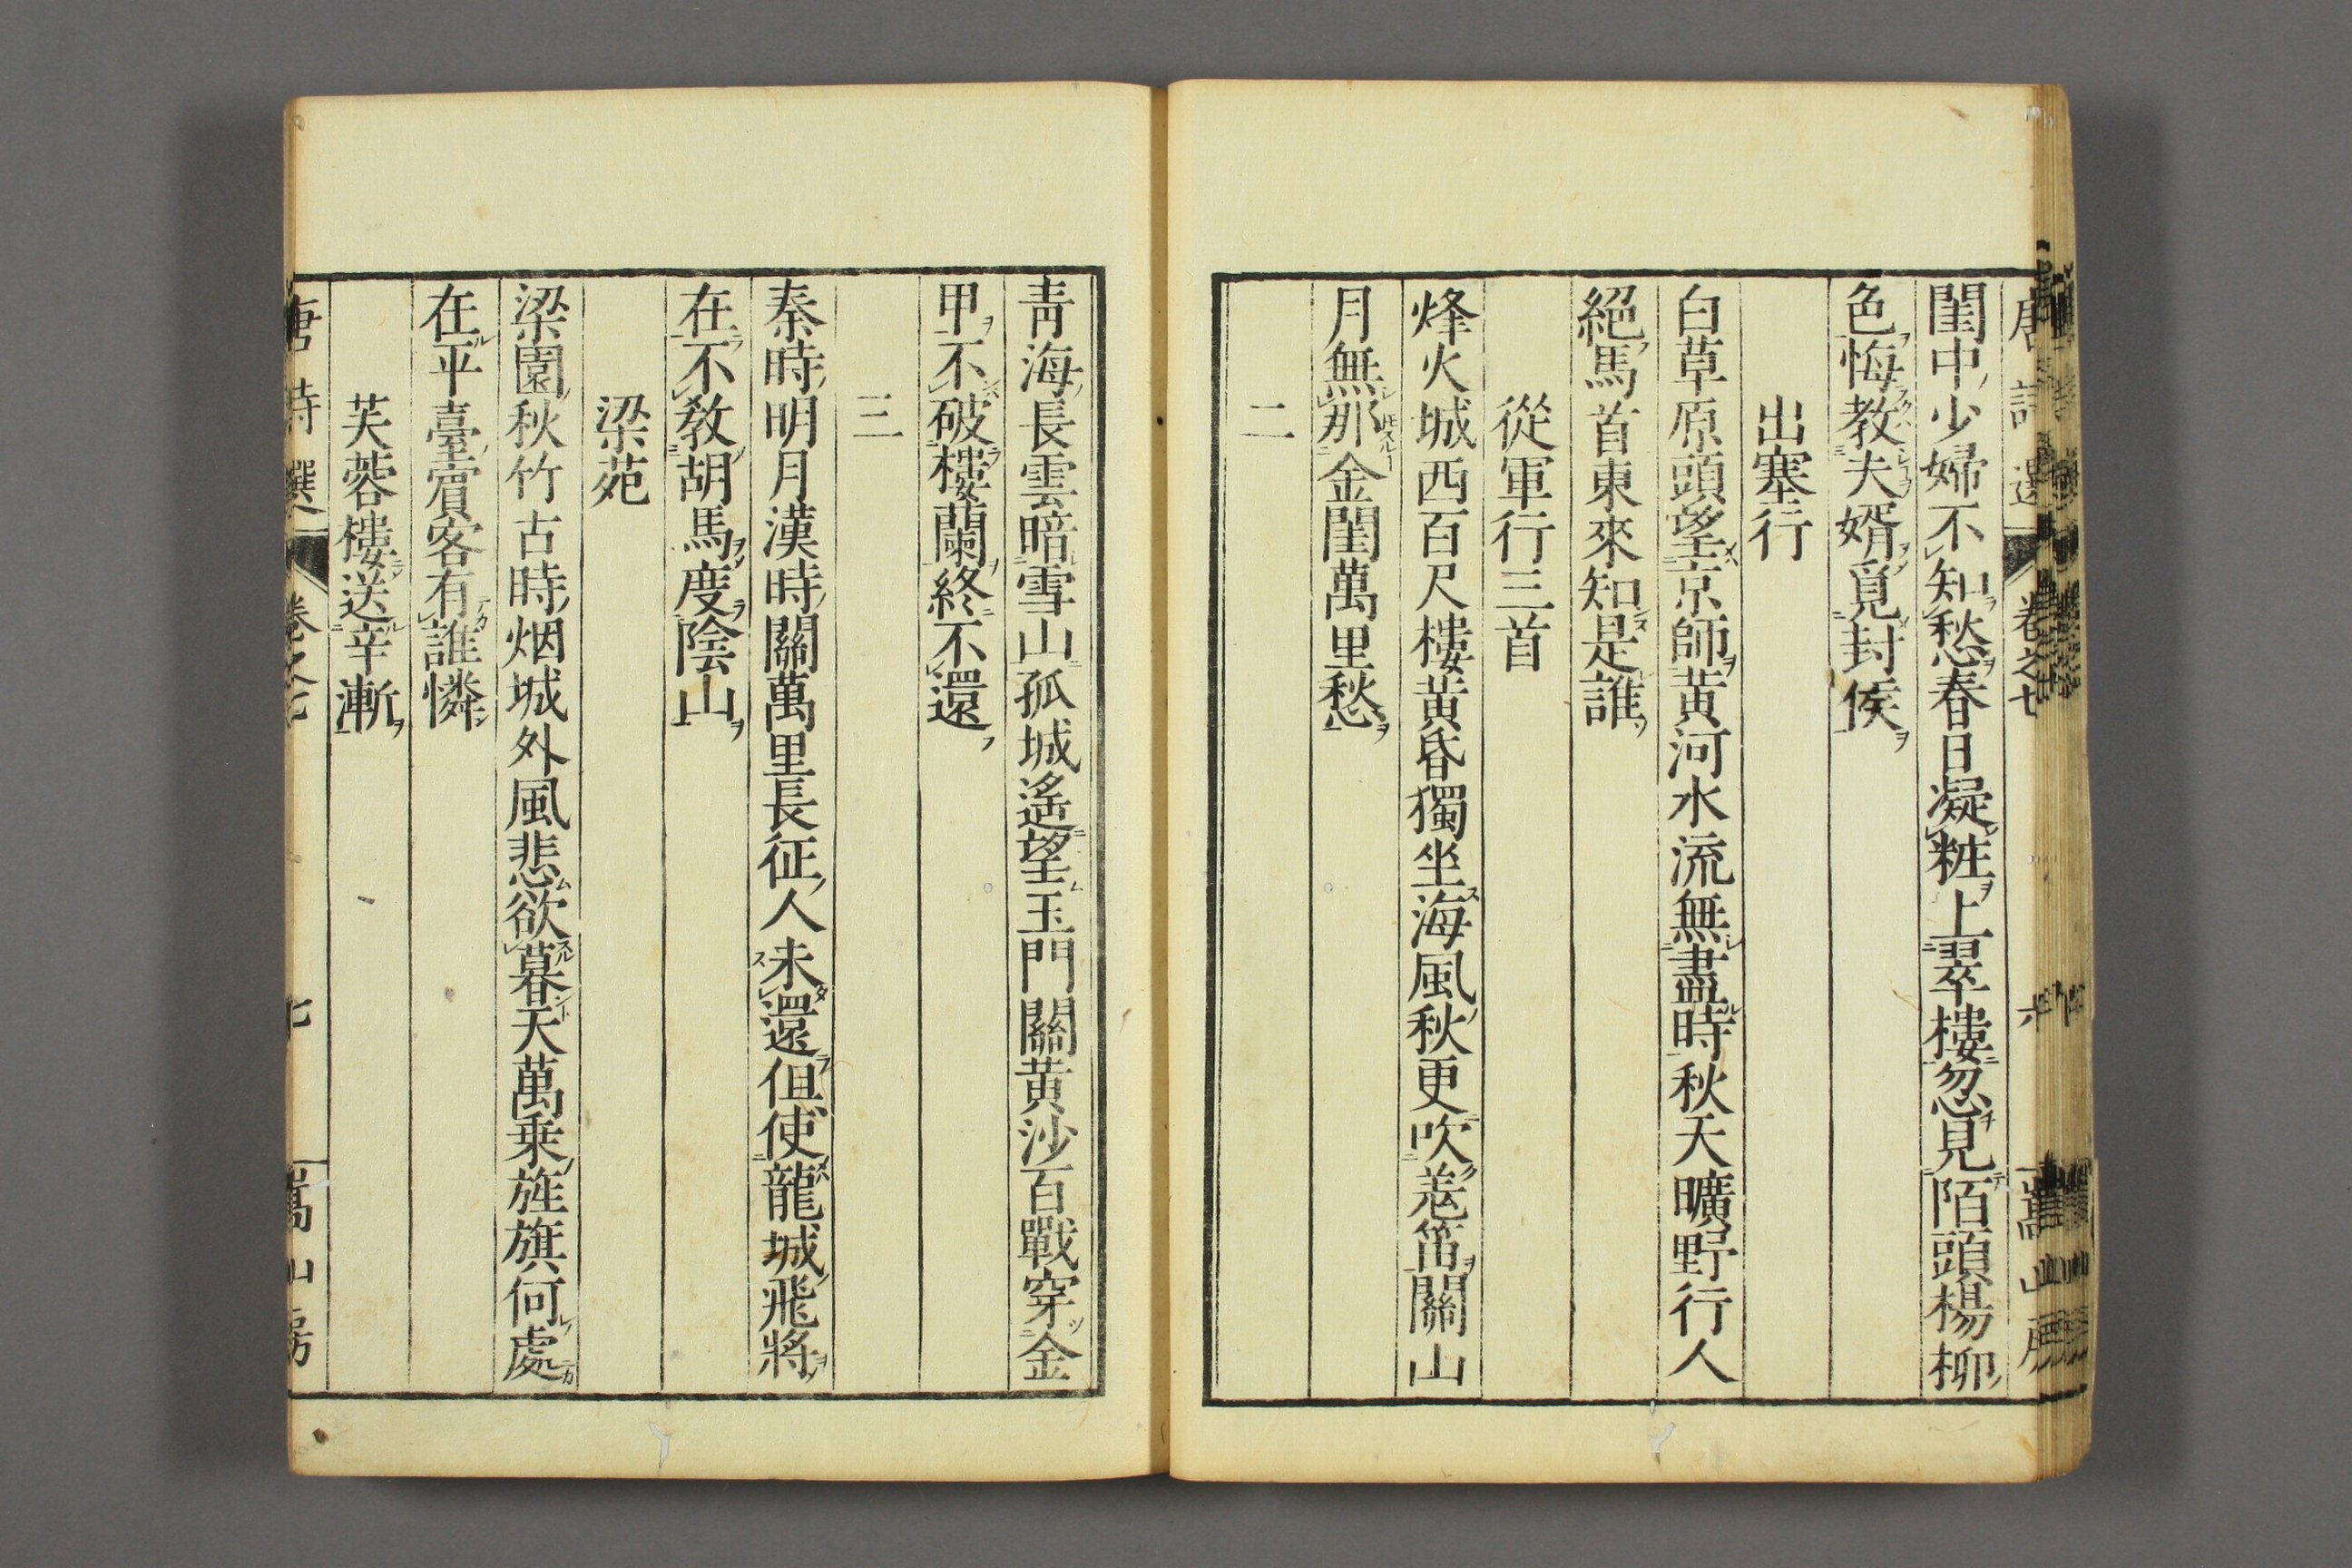 唐詩選 卷之七 六 嵩山房
閨中少婦不知愁春日凝粧上翠樓忽見陌頭楊柳
色悔教夫婿覓封侯
出塞行
白草原頭望京師黃河水流無盡時秋天曠野行人
絕馬首東來知是誰
從軍行三首
烽火城西百尺樓黃昏獨坐海風秋更吹羗笛關山
月無那金閨萬里愁
二
青海長雲暗雪山孤城遙望玉門關黃沙百戰穿金
甲不破樓蘭終不還
三
秦時明月漢時關萬里長征人未還但使龍城飛將
在不敎胡馬度陰山
梁苑
梁園秋竹古時烟城外風悲欲暮天萬乗旌旗何處
在平臺賔客有誰憐
芙蓉樓送辛漸
唐詩選 卷之七 七 嵩山房